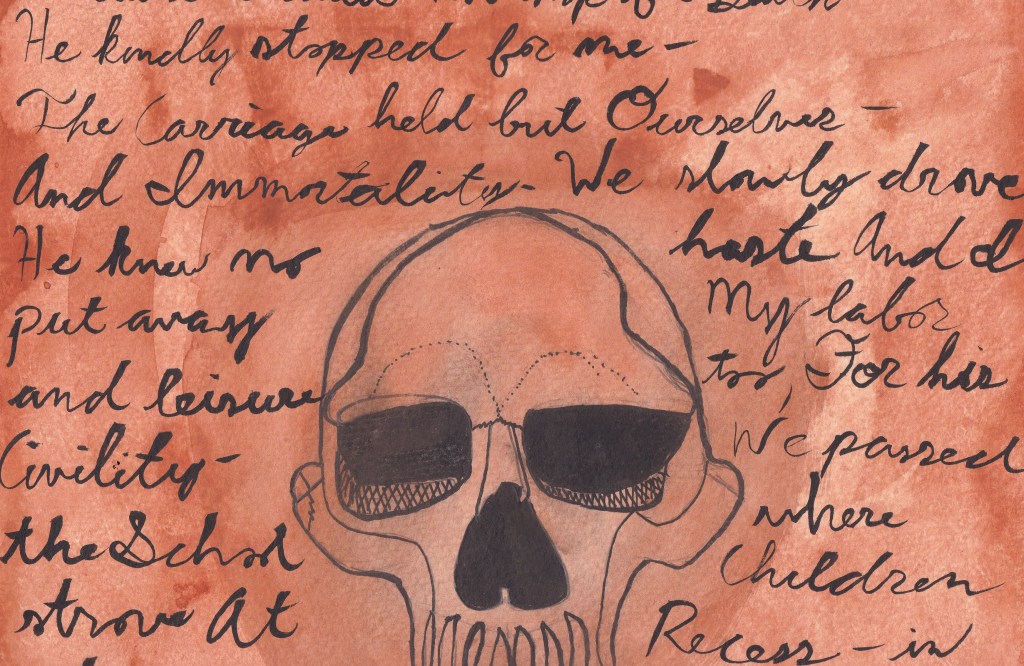 He kindly stopped for me –
The Carriage held but Ourselves –
And Immortality - We slowly drove
He knew no haste And I
put away My labor
and leisure too, For his
Civility - We passed
the School where
Children
strove At Recess – in